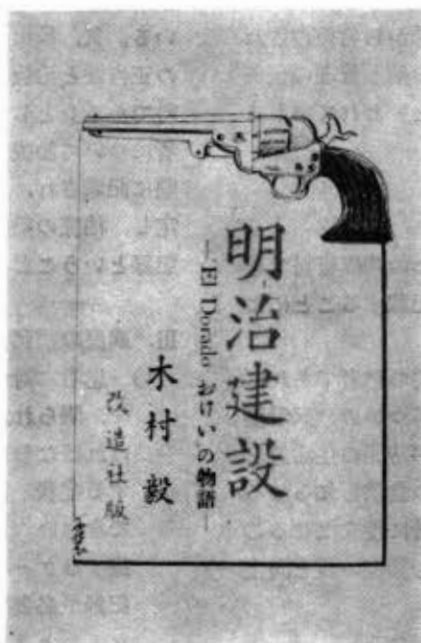 明治建設
—El Dorado おけいの物語—
木村 毅
改造社版